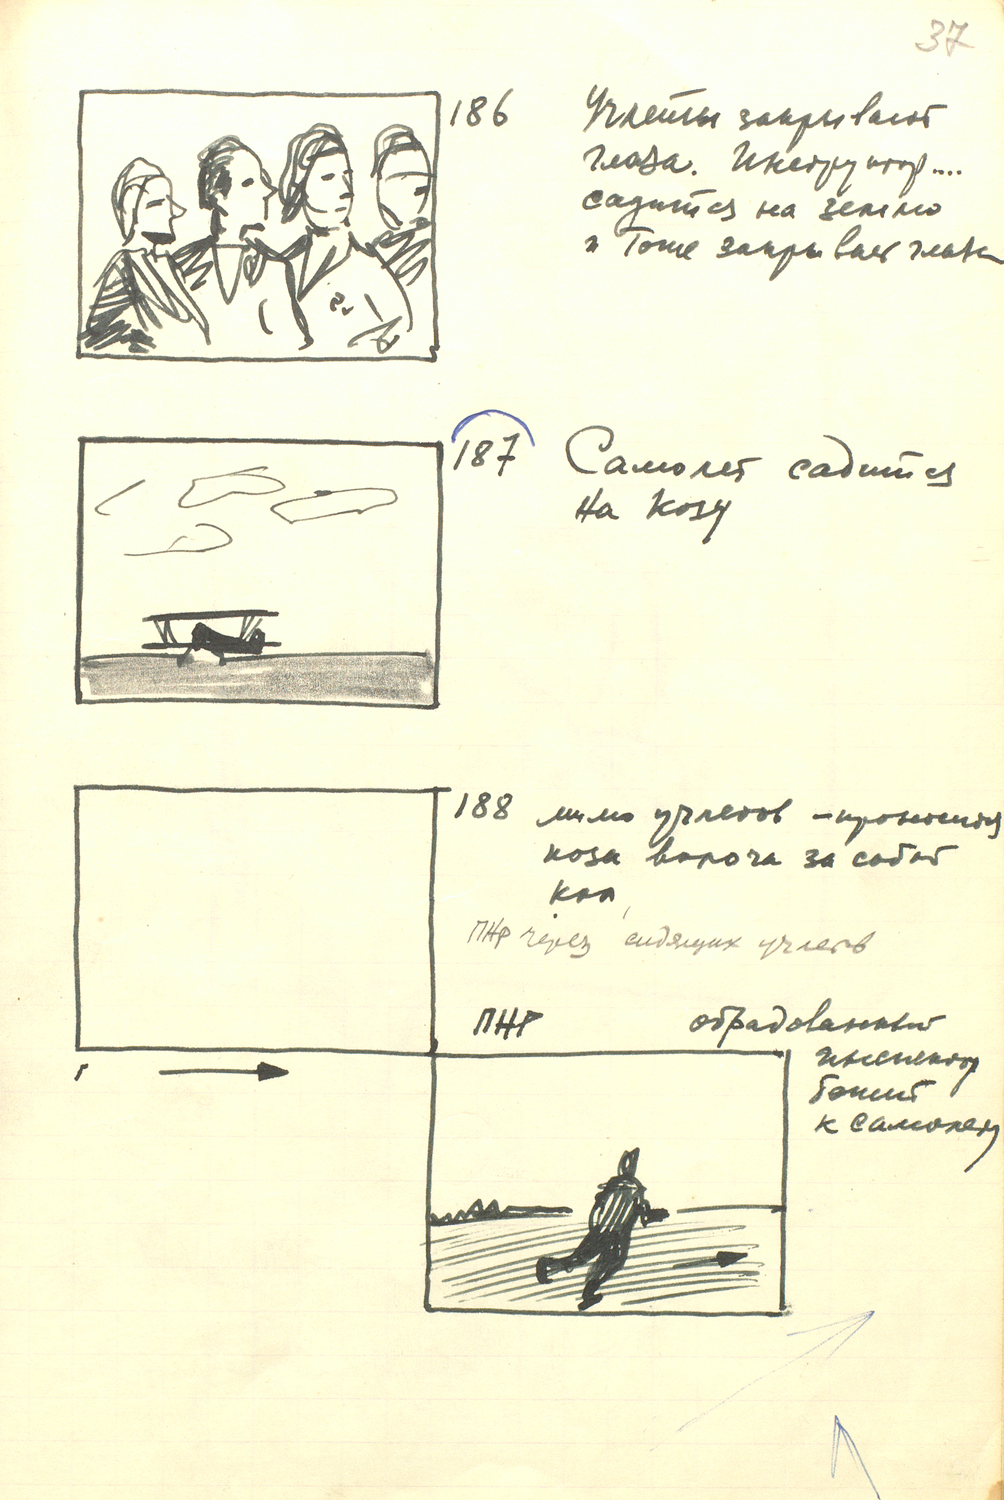 37
186 Учлеты закрывают
глаза. Инструктор....
садится на землю
и тоже закрывает глаза
187 Самолет садится
на козу
188 мимо учлетов - проносится
коза волоча за собой
кол
ПНР через сидящих учлетов
ПНР обрадованный
инспектор
бежит
к самолету